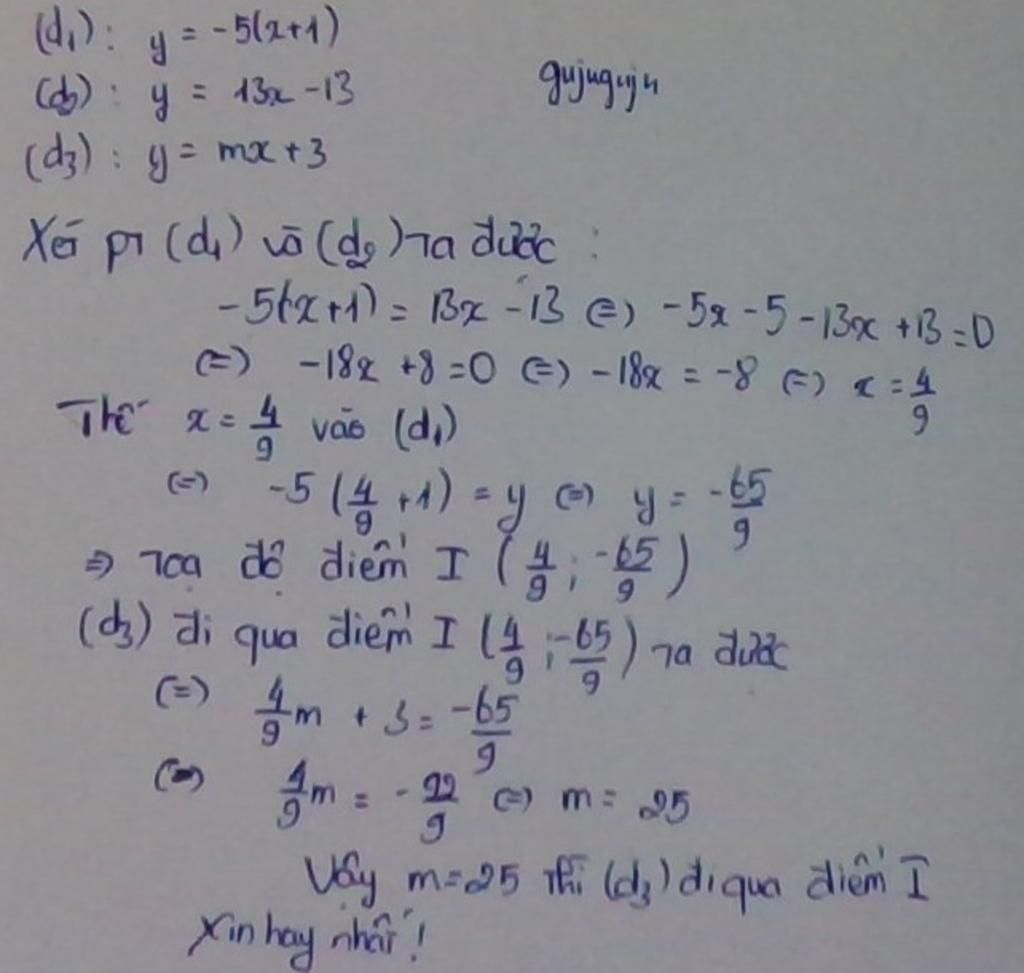 (d₁): y = -5(x+1)
(d₂): y = 13x - 13
gujuguju
(d₃): y = mx + 3
Xét pt (d₁) và (d₂) ta được :
-5(x+1) = 13x - 13 (=) -5x - 5 - 13x + 13 = 0
(=) -18x + 8 = 0 (=) -18x = -8 (=) x = 4/9
Thế x = 4/9 vào (d₁)
(=) -5(4/9 + 1) = y (=) y = -65/9
⇒ toạ độ điểm I (4/9 ; -65/9)
(d₃) đi qua điểm I (4/9 ; -65/9) ta được
(=) 4/9 m + 3 = -65/9
(=) 4/9 m = -92/9 (=) m = 25
Vậy m = 25 thì (d₃) đi qua điểm I
Xin hay nhất !